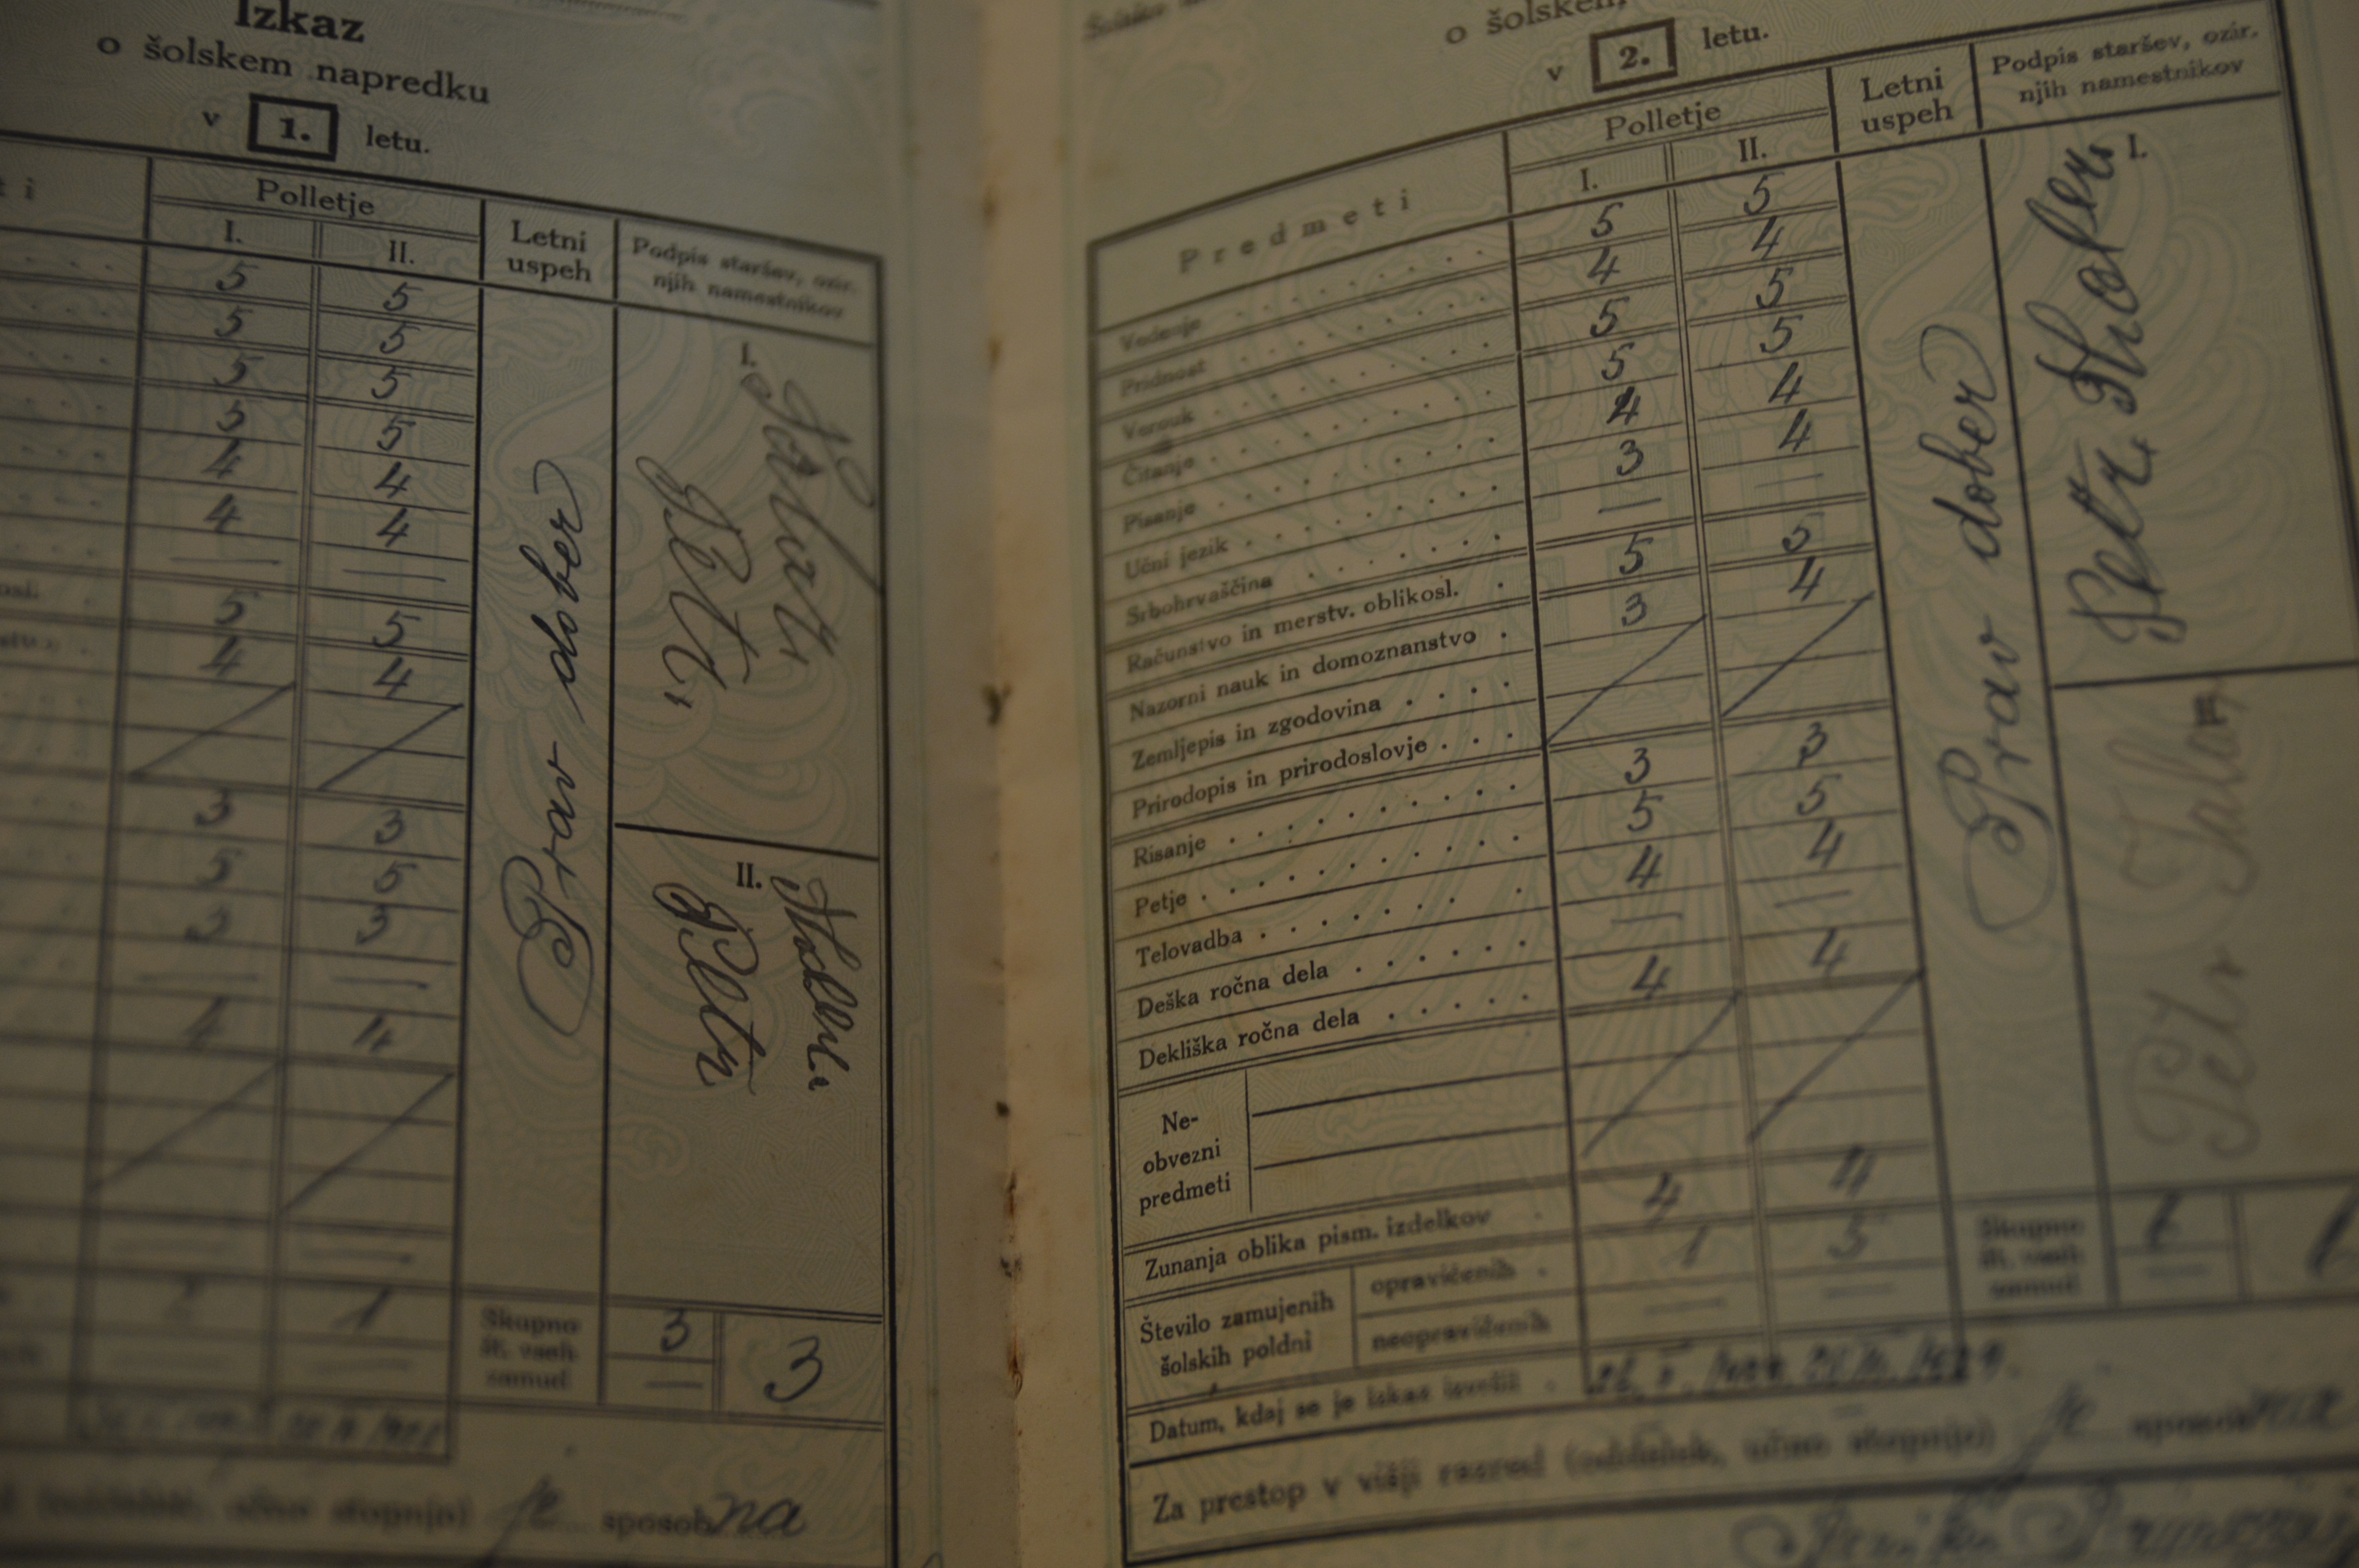 Izkaz
o šolskem napredku
v 1. letu.
Polletje
I. II.
Letni
uspeh
Podpis staršev, ozir.
njih namestnikov
5 5
5 5
5 5
5 5
4 4
4 4
— —
5 5
4 4
3 3
5 5
3 3
— —
4 4
— —
1
Prav dober
I.
II.
Skupno
št. vseh
zamud
3
—
3
je sposobna
o šolskem
v 2. letu.
Predmeti
Polletje
I. II.
Letni
uspeh
Podpis staršev, ozir.
njih namestnikov
Vedenje 5 5
Pridnost 4 4
Verouk 5 5
Čitanje 5 5
Pisanje 4 4
Učni jezik 3 4
Srbohrvaščina — —
Računstvo in merstv. oblikosl. 5 5
Nazorni nauk in domoznanstvo 3 4
Zemljepis in zgodovina
Prirodopis in prirodoslovje
Risanje 3 3
Petje 5 5
Telovadba 4 4
Deška ročna dela — —
Dekliška ročna dela 4 4
Ne-
obvezni
predmeti
Zunanja oblika pism. izdelkov 4 4
Število zamujenih
šolskih poldni
opravičenih 1 5
neopravičenih — —
Datum, kdaj se je izkaz izročil
Za prestop v višji razred (oddelek, učno stopnjo) je sposobna
Prav dober
I.
Petr
II.
Petr
Skupno
št. vseh
zamud